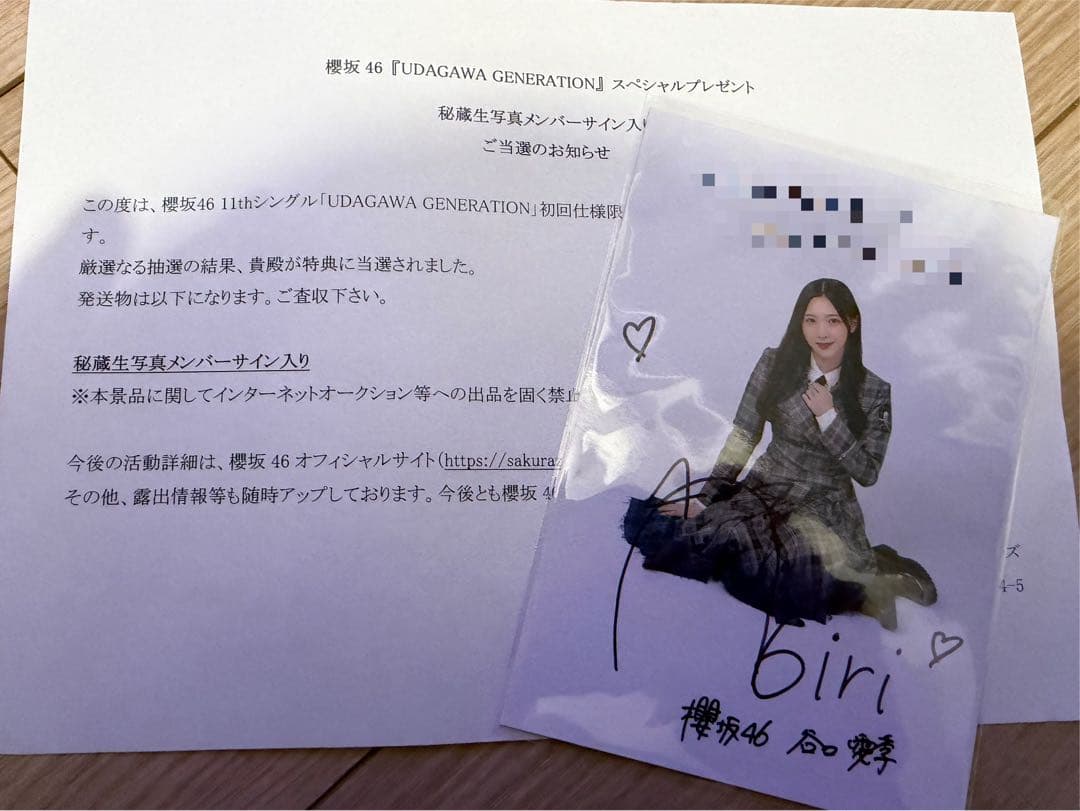 櫻坂 46 『UDAGAWA GENERATION』 スペシャルプレゼント
秘蔵生写真メンバーサイン入り
ご当選のお知らせ
この度は、櫻坂46 11thシングル「UDAGAWA GENERATION」初回仕様限
す。
厳選なる抽選の結果、貴殿が特典に当選されました。
発送物は以下になります。ご査収下さい。
秘蔵生写真メンバーサイン入り
※本景品に関してインターネットオークション等への出品を固く禁止
今後の活動詳細は、櫻坂 46 オフィシャルサイト(https://sakuraz
その他、露出情報等も随時アップしております。今後とも櫻坂 4
ズ
4-5
biri
櫻坂46 谷口 愛季